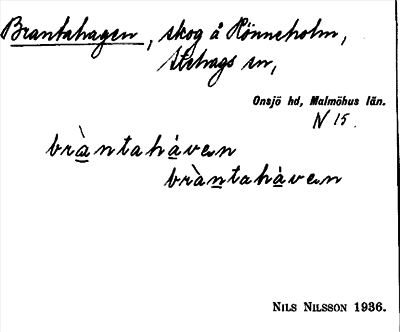 Brantahagen, skog å Rönneholm,
Stehags sn,
Onsjö hd, Malmöhus län.
N 15.
bràntaháven
bràntahàven
NILS NILSSON 1936.